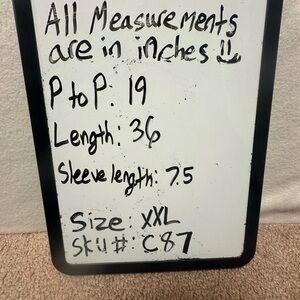 All Measurements
are in inches
P to P: 19
Length: 36
Sleeve length: 7.5
Size: XXL
SKU #: C87